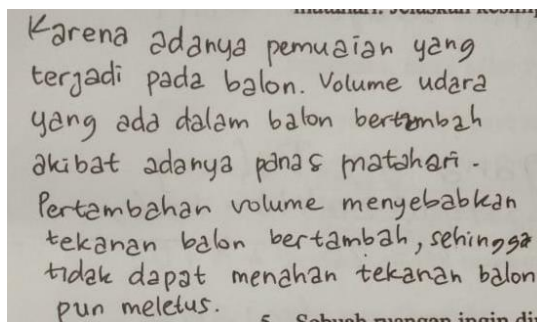 Karena adanya pemuaian yang
terjadi pada balon. Volume udara
yang ada dalam balon bertambah
akibat adanya panas matahari.
Pertambahan volume menyebabkan
tekanan balon bertambah, sehingga
tidak dapat menahan tekanan balon
pun meletus.
5. Sebuah ruangan ingin